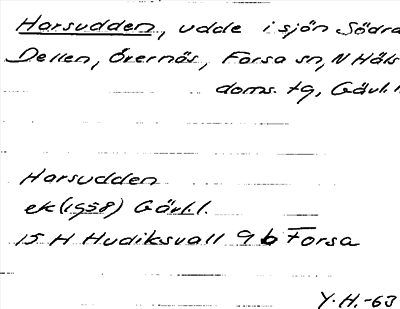 Harsudden, udde i sjön Södra
Dellen, Övernäs, Forsa sn, N Häls
doms. tg, Gävl. l.
Harsudden
ek (1958) Gävl. l.
15 H Hudiksvall 9 b Forsa
Y. H. -63